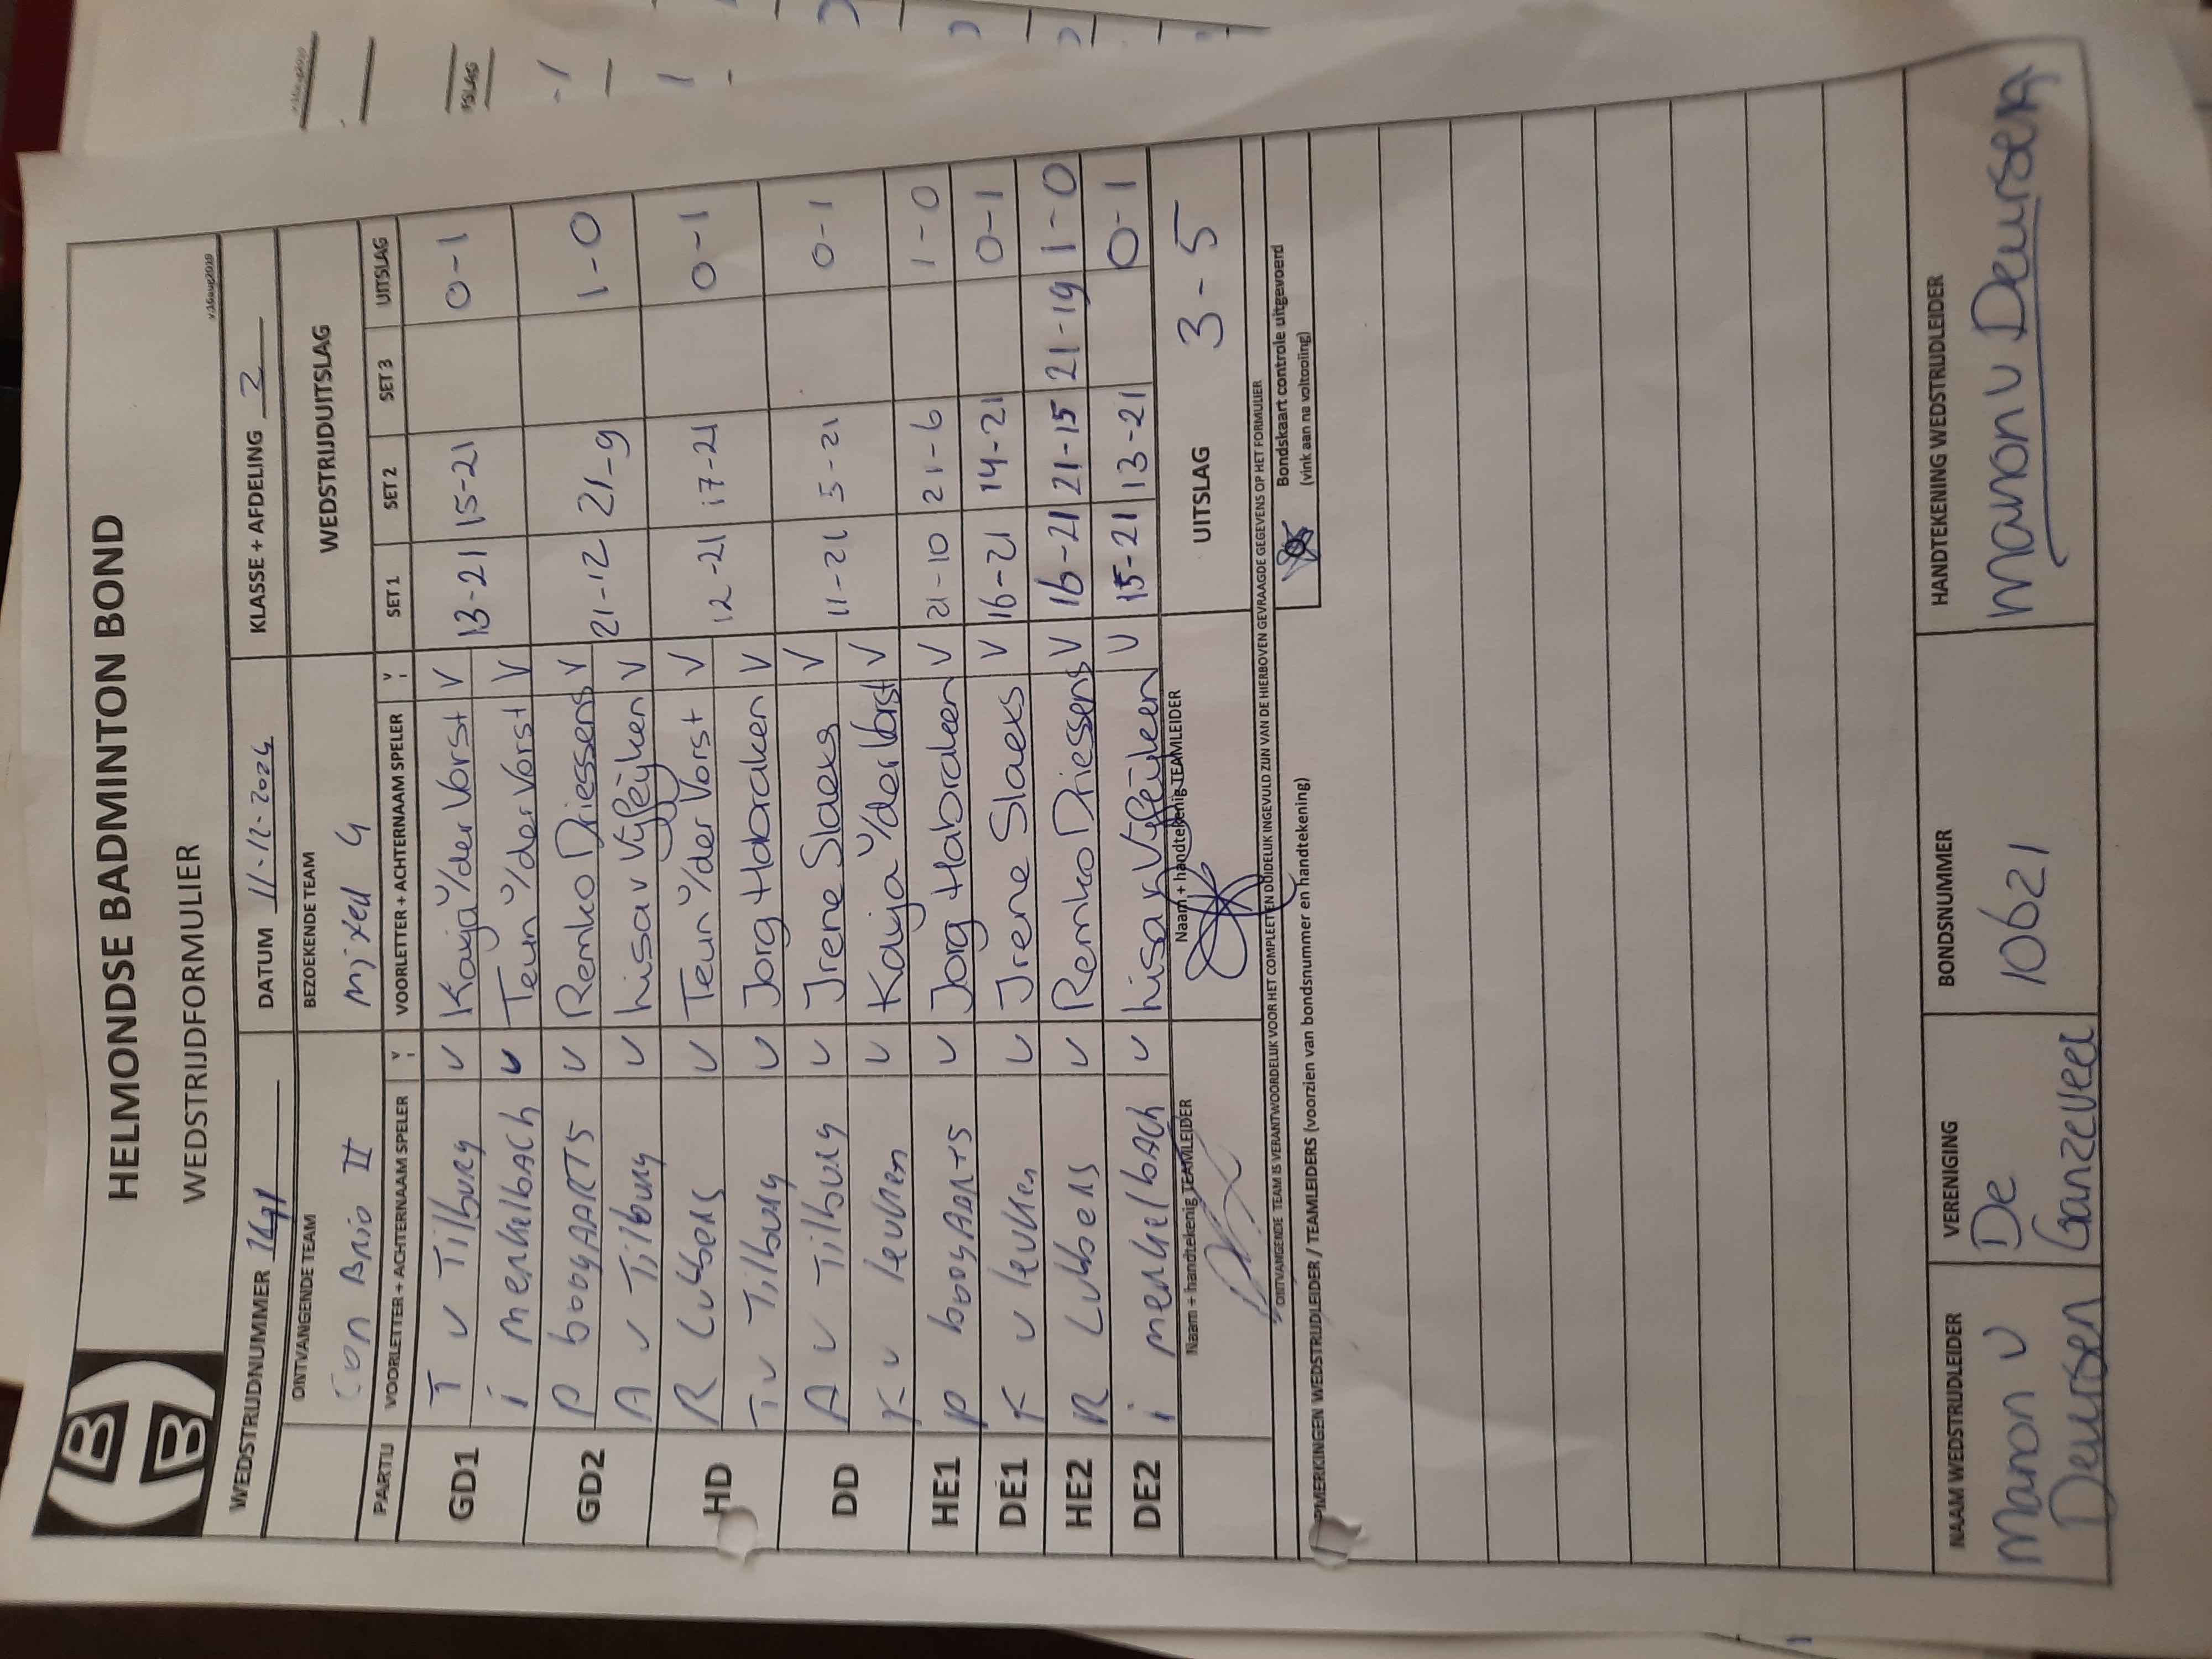 HELMONDSE BADMINTON BOND
WEDSTRIJDFORMULIER
v16aug2019
WEDSTRIJDNUMMER DATUM 11-12-2024 KLASSE + AFDELING 2
ONTVANGENDE TEAM BEZOEKENDE TEAM WEDSTRIJDUITSLAG
Con Brio II Mixed 4
PARTIJ VOORLETTER + ACHTERNAAM SPELER V VOORLETTER + ACHTERNAAM SPELER V SET 1 SET 2 SET 3 UITSLAG
GD1 T v Tilburg v Kaija v/der Vorst V 13-21 15-21 0-1
i Menkelbach v Teun v/der Vorst V
GD2 P boogAARTS v Remko Driessens V 21-12 21-9 1-0
A v Tilburg v Lisa v Vijfeijken V
HD R Lubbers v Teun v/der Vorst V 12-21 17-21 0-1
T v Tilburg v Jorg Habraken V
DD A v Tilburg v Irene Slaets V 11-21 5-21 0-1
K v leuken v Kaija v/der Vorst V
HE1 P boogAARTS v Jorg Habraken V 21-10 21-6 1-0
DE1 K v leuken v Irene Slaets V 16-21 14-21 0-1
HE2 R Lubbers v Remko Driessens V 16-21 21-15 21-19 1-0
DE2 i Menkelbach v Lisa v Vijfeijken V 15-21 13-21 0-1
Naam + handtekenig TEAMLEIDER Naam + handtekenig TEAMLEIDER UITSLAG 3-5
ONTVANGENDE TEAM IS VERANTWOORDELIJK VOOR HET COMPLEET EN DUIDELIJK INGEVULD ZIJN VAN DE HIERBOVEN GEVRAAGDE GEGEVENS OP HET FORMULIER
Bondskaart controle uitgevoerd
(vink aan na voltooiing)
PMERKINGEN WEDSTRIJDLEIDER / TEAMLEIDERS (voorzien van bondsnummer en handtekening)
NAAM WEDSTRIJDLEIDER VERENIGING BONDSNUMMER HANDTEKENING WEDSTRIJDLEIDER
Manon v De 10621 Manon v Deursen
Deursen Ganzeveer